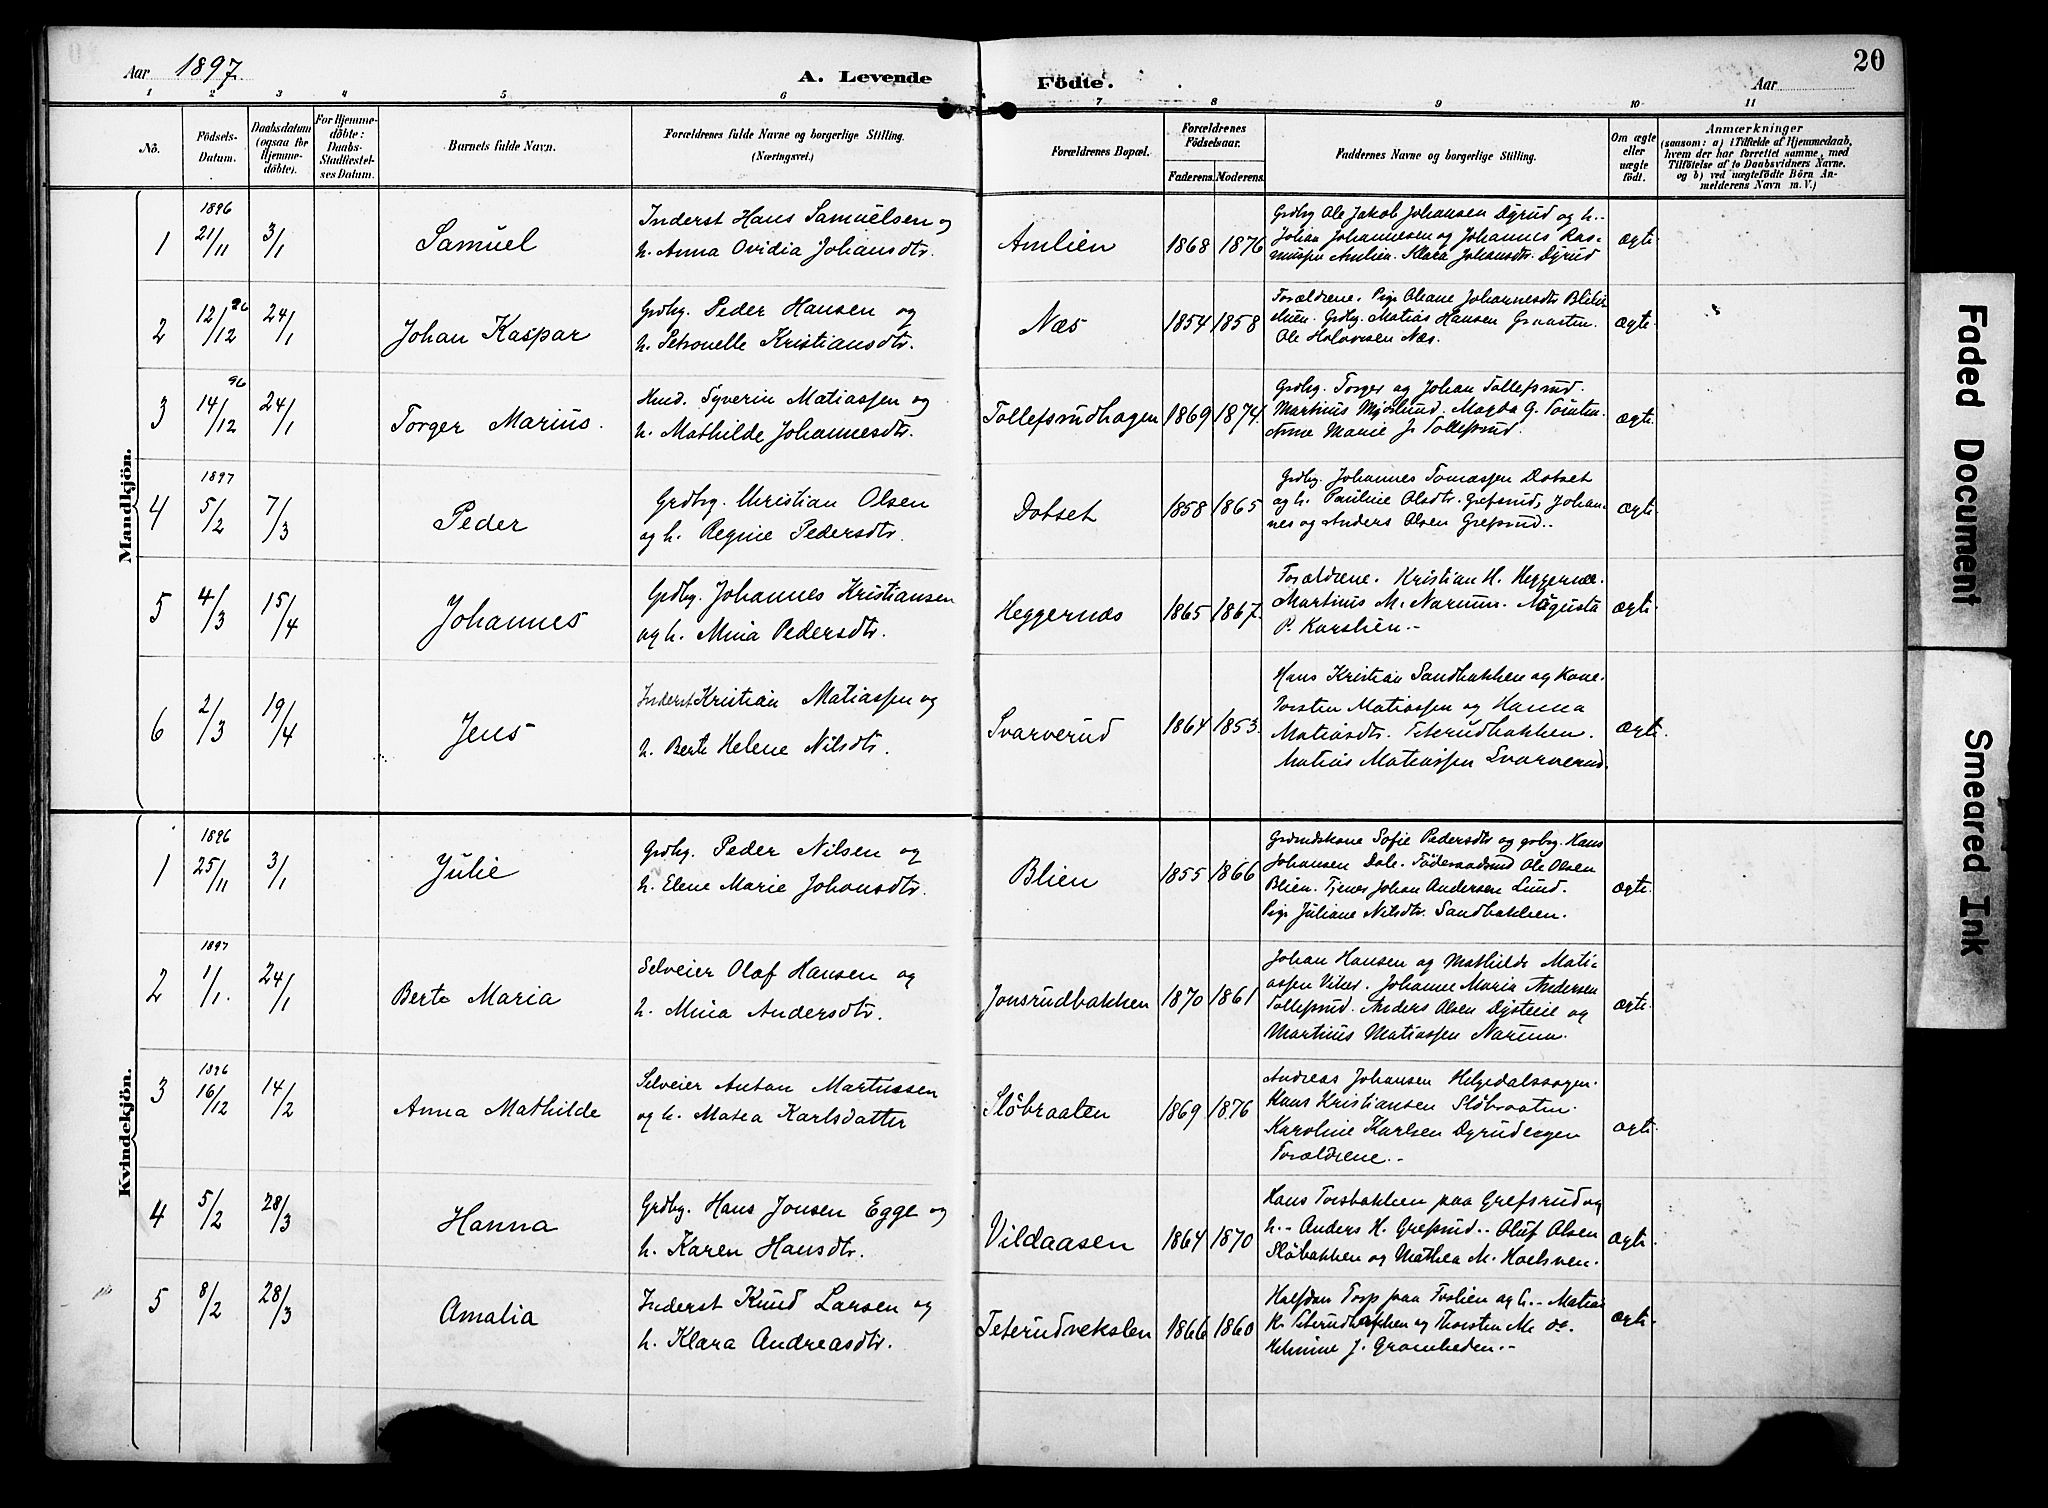 Aar 1897.
A. Levende
Födte.
20
Aar
1 2 3 4 5 6 7 8 9 10 11
No.
Födsels-Datum.
Daabsdatum (ogsaa for Hjemmedöbte).
For Hjemmedöbte: Daabs-Stadfæstelses Datum.
Barnets fulde Navn.
Forældrenes fulde Navne og borgerlige Stilling. (Næringsvei.)
Forældrenes Bopæl.
Forældrenes Födselsaar.
Faderens. Moderens.
Faddernes Navne og borgerlige Stilling.
Om ægte eller uægte födt.
Anmærkninger
(saasom: a) i Tilfælde af Hjemmedaab, hvem der har forrettet samme, med Tilföielse af to Daabsvidners Navne. og b) ved uægtefödte Börn Anmelderens Navn m. V.)
Mandkjön.
1 1896 21/11 3/1 Samuel
Inderst Hans Samuelsen og
h. Anna Ovidia Johansdtr.
Amlien 1868 1876
Grdbg Ole Jakob Johansen Dyrud og h.-
Johan Johannesen og Johannes Ras-
mussen Amlien. Klara Johansdtr. Dyrud
ægte
2 12/12 96 24/1 Johan Kaspar
Grdbg. Peder Hansen og
h. Petronelle Kristiansdtr.
Næs 1854 1858
Forældrene. Pige Oleane Johannesdtr
Grdbg. Matias Hansen
Ole Næs.
ægte
3 14/12 96 24/1 Torger Marius.
Hmd. Syverin Matiassen og
h. Mathilde Johannesdtr.
Tollefsrudhagen 1869 1874.
Grdbg. Torger og Johan Tollefsrud.
Martinus Mjöslund. G.
Anne Marie J. Tollefsrud.
ægte.
4 1897 5/2 7/3 Peder
Grdbrg. Christian Olsen
og h. Regine Pedersdtr.
Dotset 1858 1865
Grdbg. Johannes Tomassen Dotset
og h. Pauline Olsdtr. Grefsrud, Johan-
nes og Anders Olsen Grefsrud.-
ægte
5 4/3 15/4 Johannes
Grdbg. Johannes Kristiansen
og h. Mina Pedersdtr.
Heggernæs 1865 1867.
Forældrene. Kristian H. Heggernæs.
Martinus M. Narum. Augusta
P. Karslien.-
ægte
6 2/3 19/4 Jens
Inderst Kristian Matiassen og
h. Berte Helene Nilsdtr.
Svarverud 1864 1853.
Hans Kristian Sandbakken og Kone.
Torsten Matiassen og Hanna
Matiasdtr. Teterudbakken.
Matias Matiassen Svarverud.
ægte.
Kvindekjön.
1 1896 25/11 3/1 Julie
Grdbg. Peder Nilsen og
h. Elene Marie Johansdtr.
Blien 1855 1866
Grdmdskone Sofie Pedersdtr og grbrg. Hans
Johansen Dale. Föderaadsmd Ole Olsen
Blien. Tjener Johan Andersen Lund.
Pige Juliane Nilsdtr. Sandbakken.
ægte.
2 1897 1/1. 24/1 Berte Maria
Selveier Olaf Hansen og
h. Mina Andersdtr.
Jonsrudbakken 1870 1861
Johan Hansen og Mathilde Mati-
assen Viker. Johanne Marie Andersen
Tollefsrud. Anders Olsen Dysteie og
Martinus Matiassen Narum.
ægte.
3 1896 16/12 14/2 Anna Mathilde
Selveier Anton Martinssen
og h. Matea Karlsdatter
Slöbraaten 1869 1876
Andreas Johansen
Hans Kristiansen Slöbraaten.
Karoline Karlsen
Forældrene.-
ægte.
4 5/2 28/3 Hanna
Grdbg. Hans Jonsen Egge og
h. Karen Hansdtr.
Vildaasen 1864 1870
Hans Torsbakken paa Grefsrud og
h.- Anders H. Grefsrud.- Oluf Olsen
Slöbakken og Mathea M.
ægte.
5 8/2 28/3 Amalia
Inderst Knud Larsen og
h. Klara Andreasdtr.
Teterudvekslen 1866 1860
Halfdan Torp paa og h.- Matias
K. Teterudbakken og Thorsten M. do.
Helmine J.
ægte.
Faded Document
Smeared Ink